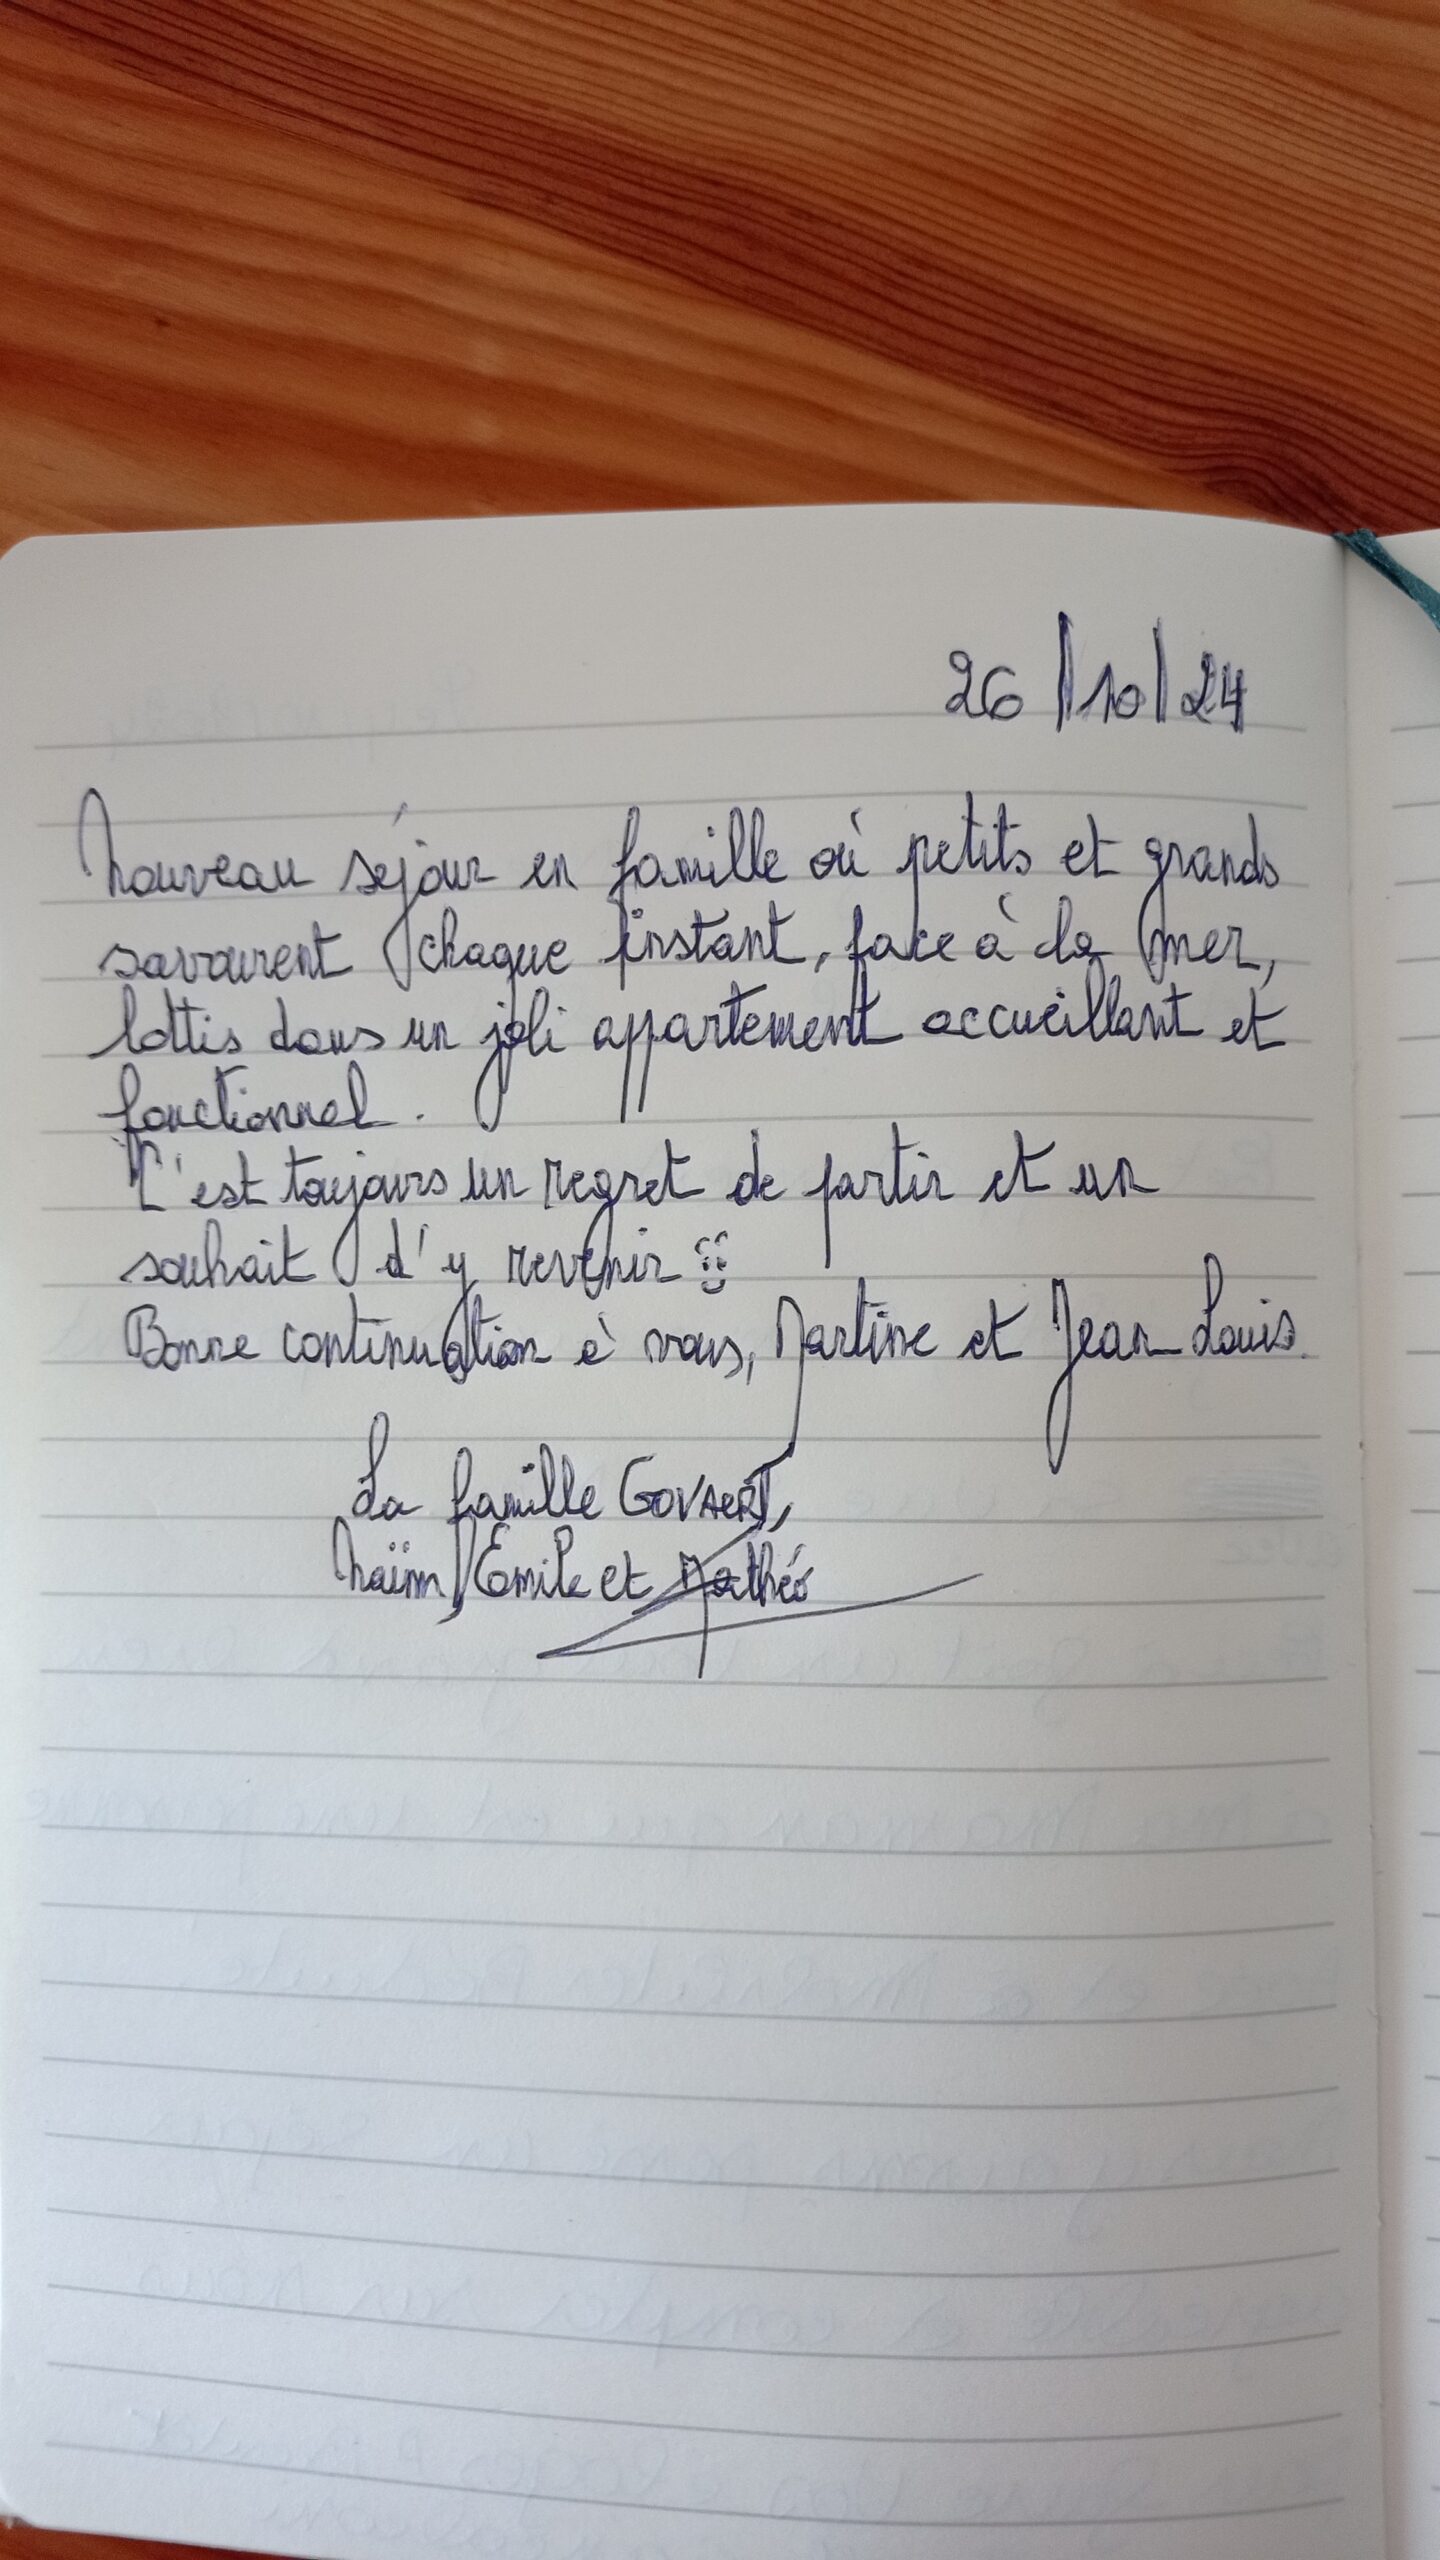 26/10/24
Nouveau séjour en famille où petits et grands
savourent chaque instant, face à la mer,
lottis dans un joli appartement accueillant et
fonctionnel.
C'est toujours un regret de partir et un
souhait d'y revenir
Bonne continuation à vous, Martine et Jean Louis.
La famille GOVAERT,
Naïm, Emile et Mathéo